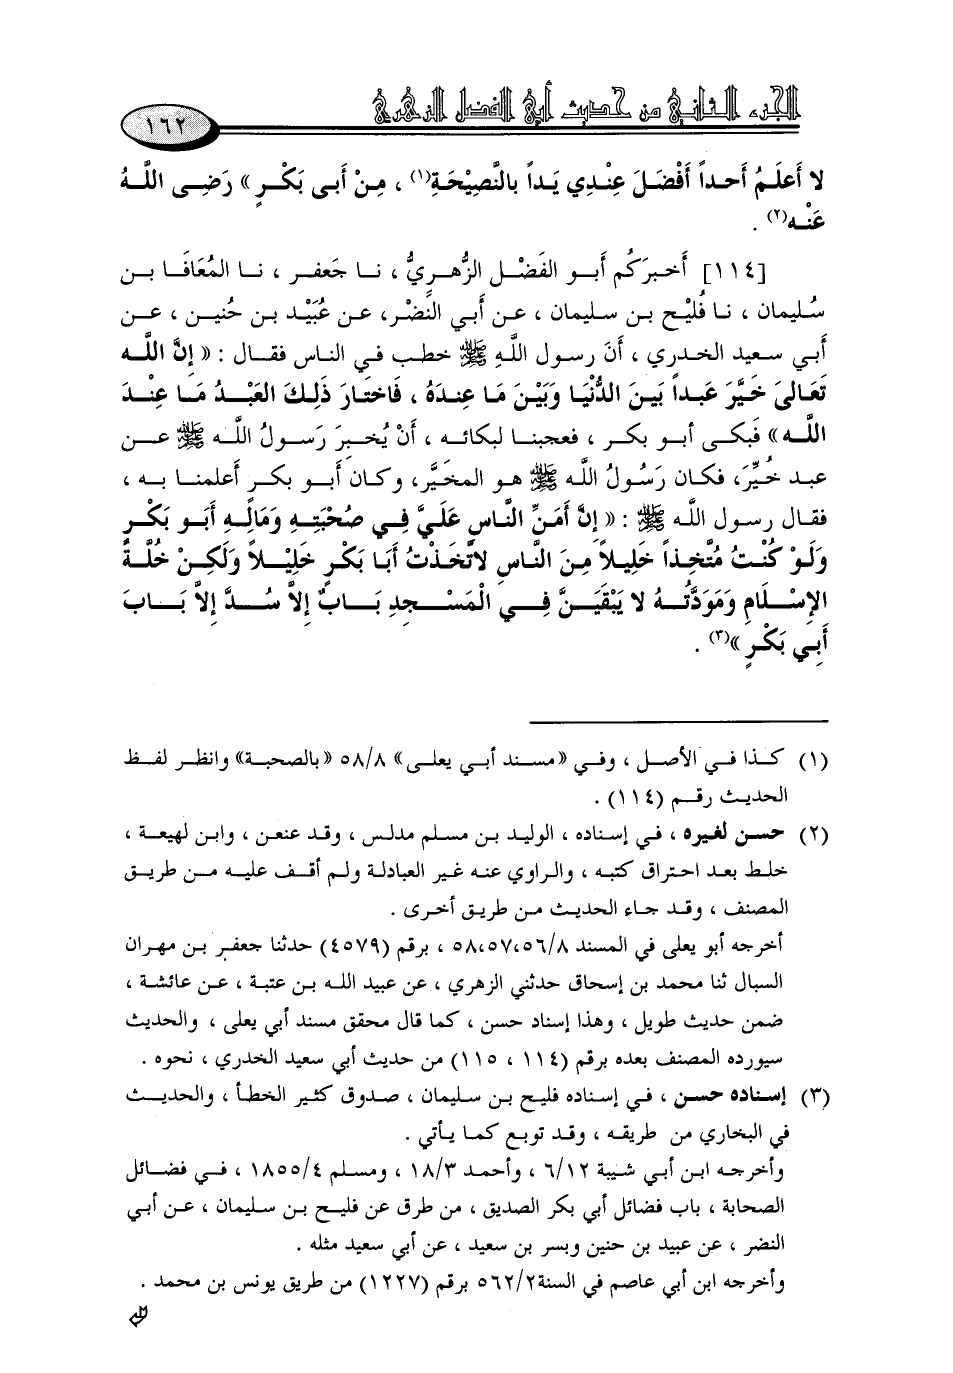 الجزء الثاني من حديث أبي الفضل الزهري
١٦٢
لا أَعلَمُ أَحداً أَفْضَلَ عِنْدِي يَداً بالنَّصِيْحَةِ(١) ، مِنْ أَبى بَكْرٍ» رَضِى اللَّهُ
عَنْه(٢) .
[١١٤] أَخبرَكُم أَبو الفَضْل الزُّهريُّ ، نا جَعفر ، نا المُعَافَا بن
سُليمان ، نا فُليح بن سليمان ، عن أَبي النَّضْر، عن عُبَيْد بن حُنين ، عن
أَبي سعيد الخدري ، أنَ رسول اللَّهِ ﷺ خطب في الناس فقال : « إنَّ اللَّه
تَعَالىَ خَيَّرَ عَبداً بَينَ الدُّنْيَا وَبَيْنَ مَا عِندَهُ ، فَاختارَ ذَلِكَ العَبْدُ مَا عِنْدَ
اللَّه» فَبكى أبو بكر ، فعجبنا لبكائه ، أَنْ يُخبِرَ رَسولُ اللَّه ﷺ عن
عبد خُيِّرَ، فكان رَسُولُ اللَّه ﷺ هو المخيَّر، وكان أَبو بكر أعلمنا به ،
فقال رسول اللَّه ﷺ : « إنَّ أَمَنَّ النَّاسِ عَلَيَّ فِي صُحْبَتِهِ وَمَالِهِ أَبو بَكْرٍ
وَلَوْ كُنْتُ مُتَّخِذاً خَلِيلاً مِنَ النَّاسِ لاتَّخَذْتُ أَبَا بَكْرٍ خَلِيْلاً وَلَكِنْ خُلَّةُ
الإسْلَامِ وَمَوَدَّتُهُ لا يَبْقَيَنَّ فِي الْمَسْجِدِ بَابٌ إلاَّ سُدَّ إلاَّ بَابَ
أَبِي بَكْرٍ »(٣) .
(١) كذا في الأصل ، وفي «مسند أبي يعلى» ٥٨/٨ «بالصحبة» وانظر لفظ
الحديث رقم (١١٤) .
(٢) حسن لغيره ، في إسناده ، الوليد بن مسلم مدلس ، وقد عنعن ، وابن لهيعة ،
خلط بعد احتراق كتبه ، والراوي عنه غير العبادلة ولم أقف عليه من طريق
المصنف ، وقد جاء الحديث من طريق أخرى .
أخرجه أبو يعلى في المسند ٥٨،٥٧،٥٦/٨ ، برقم (٤٥٧٩) حدثنا جعفر بن مهران
السبال ثنا محمد بن إسحاق حدثني الزهري ، عن عبيد الله بن عتبة ، عن عائشة ،
ضمن حديث طويل ، وهذا إسناد حسن ، كما قال محقق مسند أبي يعلى ، والحديث
سيورده المصنف بعده برقم (١١٤ ، ١١٥) من حديث أبي سعيد الخدري ، نحوه .
(٣) إسناده حسن ، في إسناده فليح بن سليمان ، صدوق كثير الخطأ ، والحديث
في البخاري من طريقه ، وقد توبع كما يأتي .
وأخرجه ابن أبي شيبة ٦/١٢ ، وأحمد ١٨/٣ ، ومسلم ١٨٥٥/٤ ، في فضائل
الصحابة ، باب فضائل أبي بكر الصديق ، من طرق عن فليح بن سليمان ، عن أبي
النضر ، عن عبيد بن حنين وبسر بن سعيد ، عن أبي سعيد مثله .
وأخرجه ابن أبي عاصم في السنة٥٦٢/٢ برقم (١٢٢٧) من طريق يونس بن محمد .